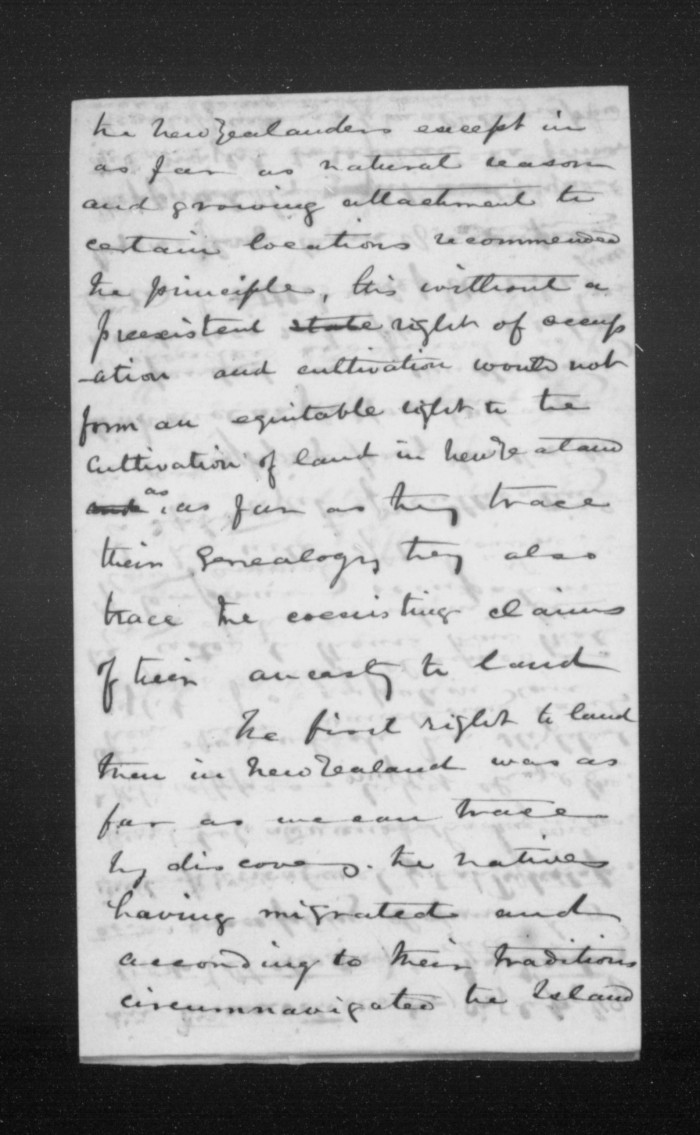 the New Zealanders except in
as far as natural reason
and growing attachment to
certain locations recommended
the principle, this without a
preexistent state right of occup
-ation and cultivation would not
form an equitable right to the
cultivation of land in New Zealand
as, as far as they trace
their genealogy they also
trace the coexisting claims
of their ancesty to land
The first right to land
then in New Zealand was as
far as we can trace
by discovery. the natives
having migrated and
according to their traditions
circumnavigated the Island